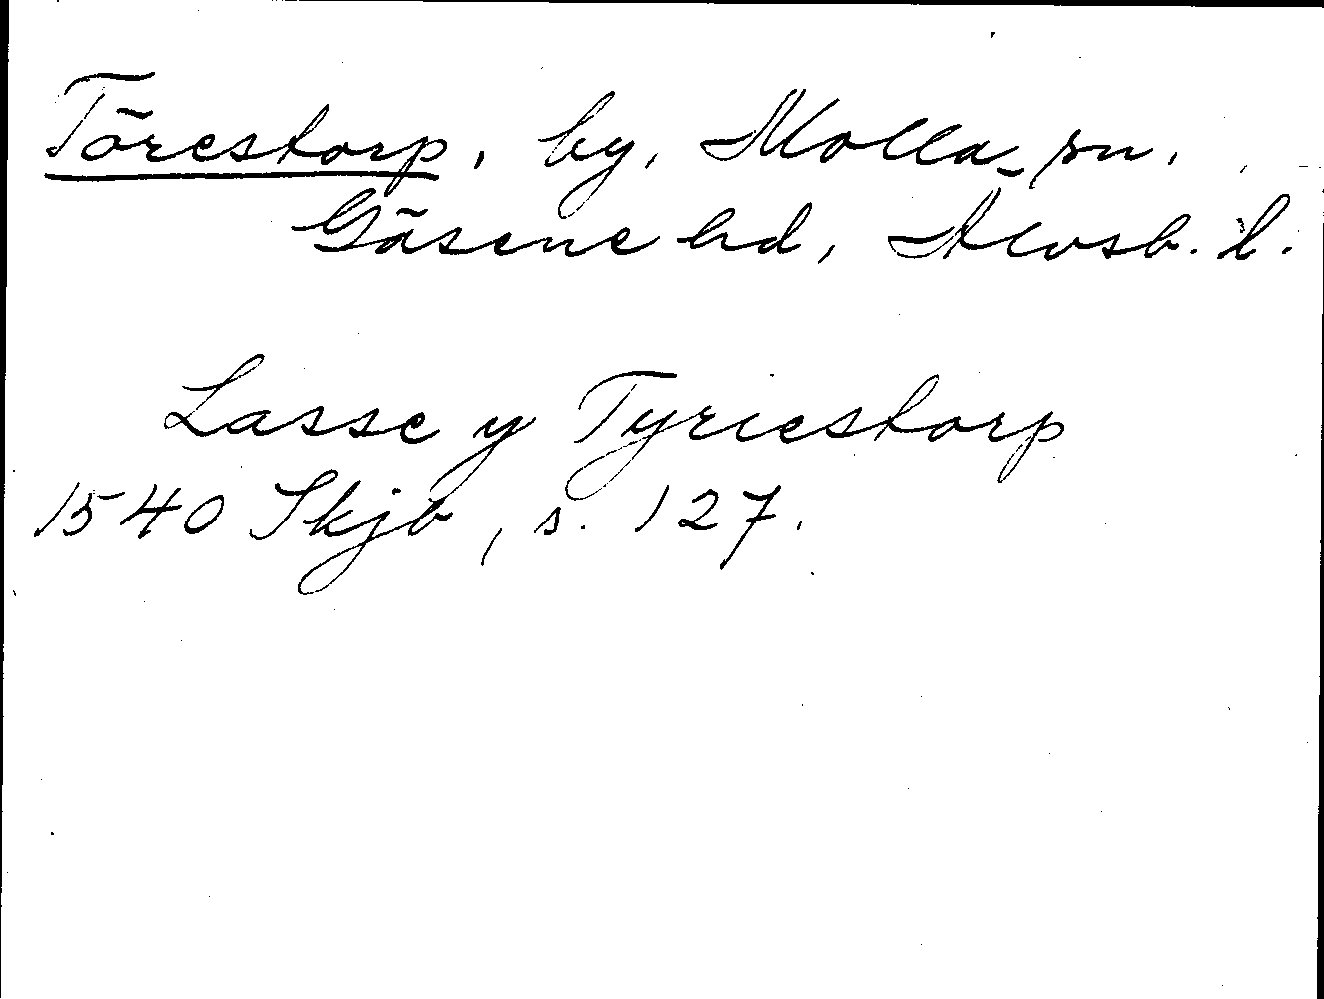 Törestorp, by, Molla sn.
Gäsene hd, Älvsb. l.
Lasse y Tyriestorp
1540 Skjb, s. 127.